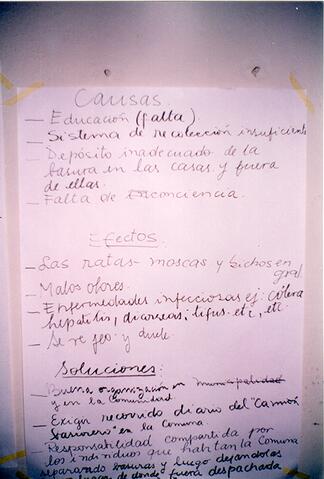 Causas.
— Educación (falta)
— Sistema de recolección insuficiente
— Depósito inadecuado de la
basura en las casas y fuera
de ellas.
— Falta de conciencia.
Efectos.
— Las ratas - moscas y bichos en
gral
— Malos olores.
— Enfermedades infecciosas ej: cólera
hepatitis, diarreas, tifus etc, etc
— Se ve feo y duele
Soluciones:
— Buena organización en municipalidad
y en la Comunidad
— Exigir recorrido diario del "Camión
basurero" en la Comuna
— Responsabilidad compartida por
los individuos que habitan la Comuna
separando basuras y luego dejándolas
lugar de donde fuera despachada